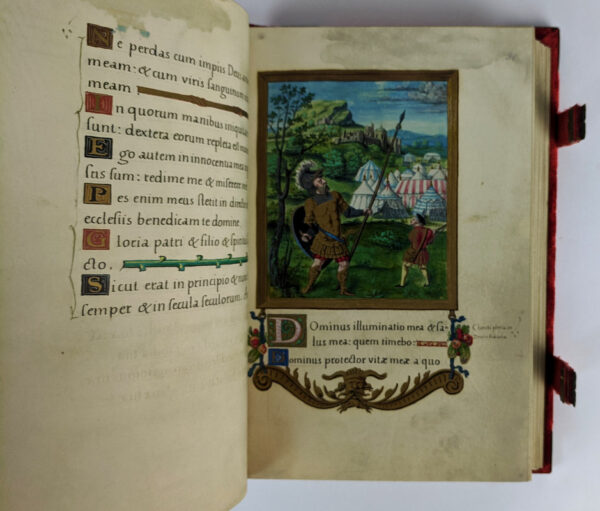 Ne perdas cum impiis Deus
meam: & cum viris sanguinum
meam
In quorum manibus iniquita
sunt: dextera eorum repleta est mu
Ego autem in innocentia mea
sus sum: redime me & miserere
Pes enim meus stetit in dire
ecclesiis benedicam te domine.
Gloria patri & filio & spiritu
cto.
Sicut erat in principio & nu
semper & in secula seculorum.
Dominus illuminatio mea & sa-
lus mea: quem timebo:
Dominus protector vitæ meæ a quo